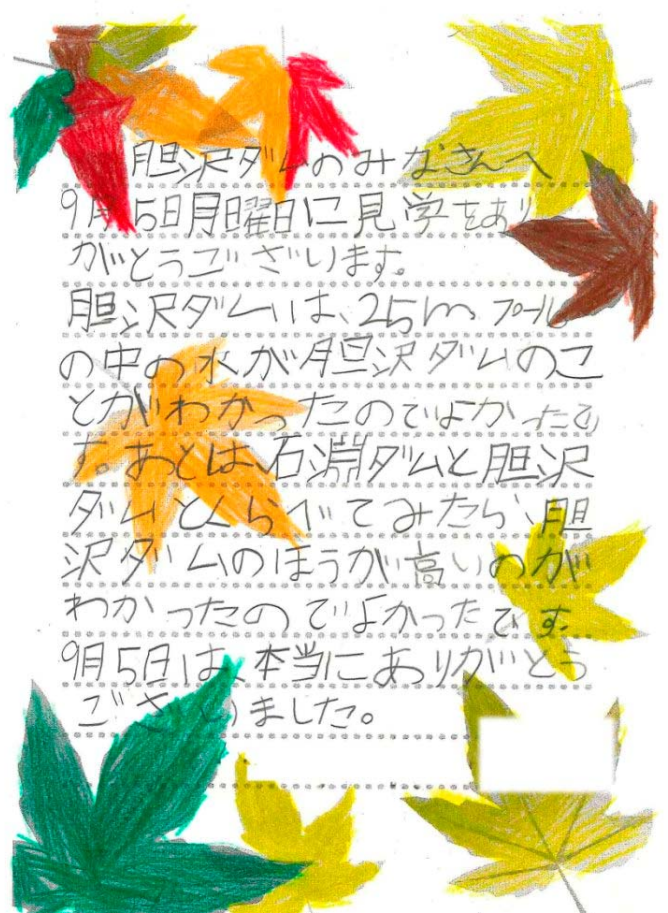 胆沢ダムのみなさんへ
9月5日月曜日に見学をあり
がとうございます。
胆沢ダムは、25mプール
の中の水が胆沢ダムのこ
とがわかったのでよかったで
す。あとは、石淵ダムと胆沢
ダムとくらべてみたら、胆
沢ダムのほうが高いのが
わかったのでよかったです。
9月5日は、本当にありがとう
ございました。